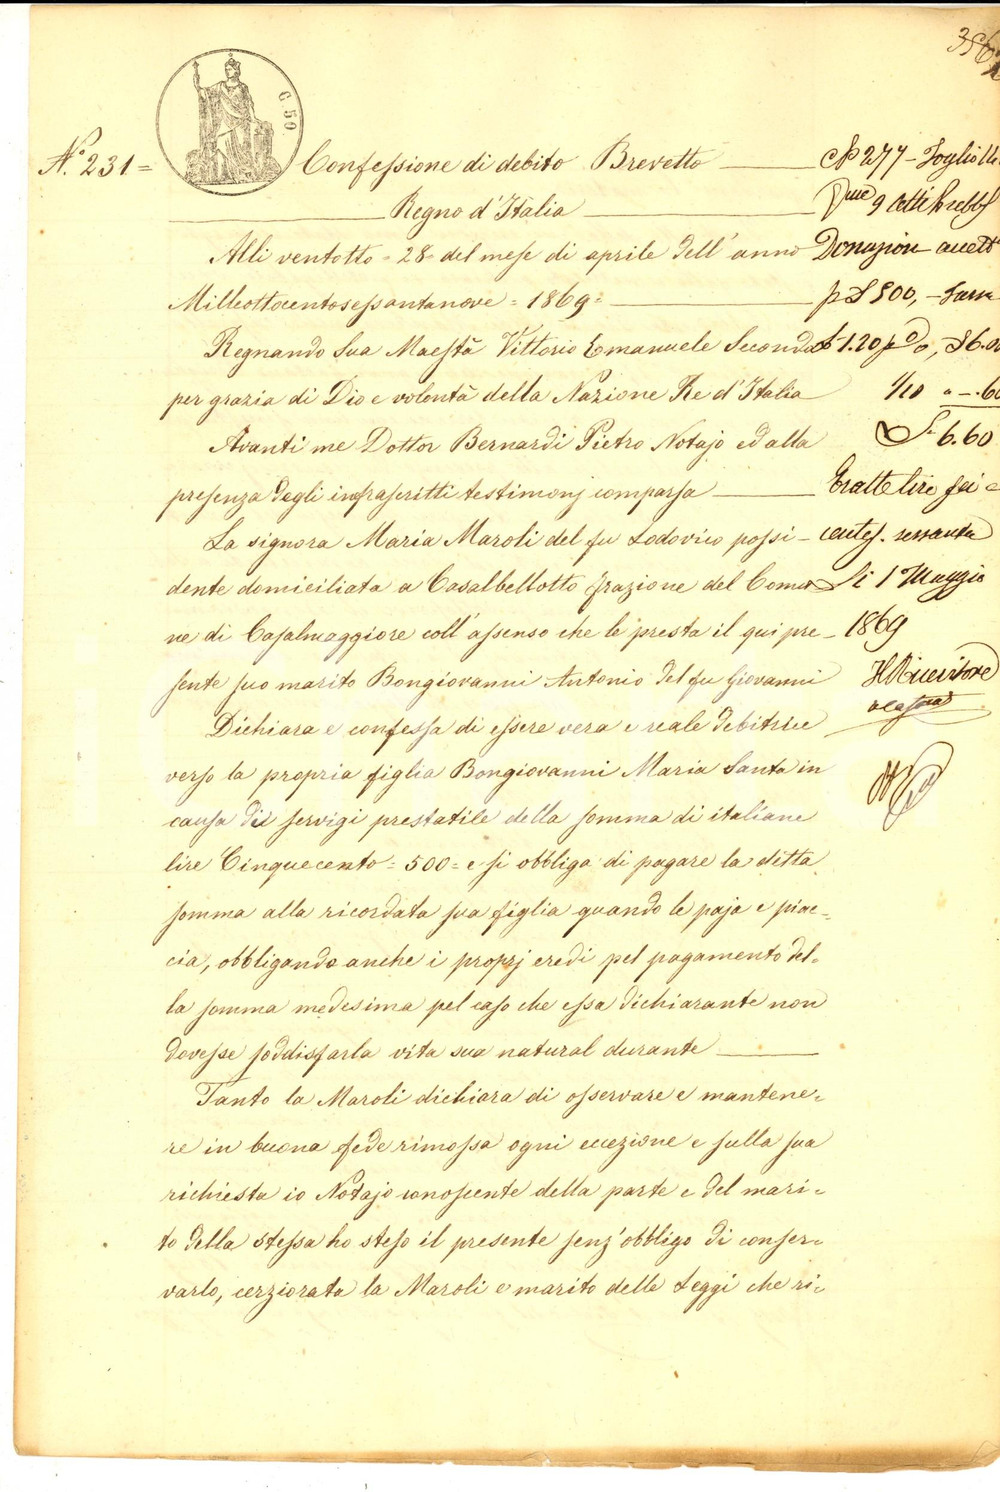 356
N.° 231 =
C. 50
Confessione di debito Brevetto
Regno d'Italia
Alli ventotto = 28 = del mese di aprile dell' anno
Milleottocentosessantanove = 1869 =
Regnando Sua Maestà Vittorio Emanuele Secondo
per grazia di Dio e volontà della Nazione Re d'Italia
Avanti me Dottor Bernardi Pietro Notajo ed alla
presenza degli infrascritti testimonj comparsa
La signora Maria Maroli del fu Lodovico possi-
dente domiciliata a Casalbellotto frazione del Comu
ne di Casalmaggiore coll' assenso che le presta il qui pre-
sente suo marito Bongiovanni Antonio del fu Giovanni
Dichiara e confessa di essere vera e reale debitrice
verso la propria figlia Bongiovanni Maria Santa in
causa di servigi prestatile della somma di italiane
lire Cinquecento = 500 = e si obbliga di pagare la ditta
somma alla ricordata sua figlia quando le paja e piac=
cia, obbligando anche i proprj eredi pel pagamento del=
la somma medesima pel caso che essa dichiarante non
dovesse soddisfarla vita sua natural durante
Tanto la Maroli dichiara di osservare e mantene=
re in buona fede rimossa ogni eccezione e sulla sua
richiesta io Notajo conoscente della parte e del mari=
to della stessa ho steso il presente senz' obbligo di conser=
varlo, cerziorata la Maroli e marito delle Leggi che ri=
N° 277 - Foglio
9 Atti
Donazion
p £ 500, -
£ 1.20 p %, £ 6.
1/10 " -. 60
£ 6.60
Esatte lire sei e
centes. sessanta
Li 1 Maggio
1869
Il Ricevitore